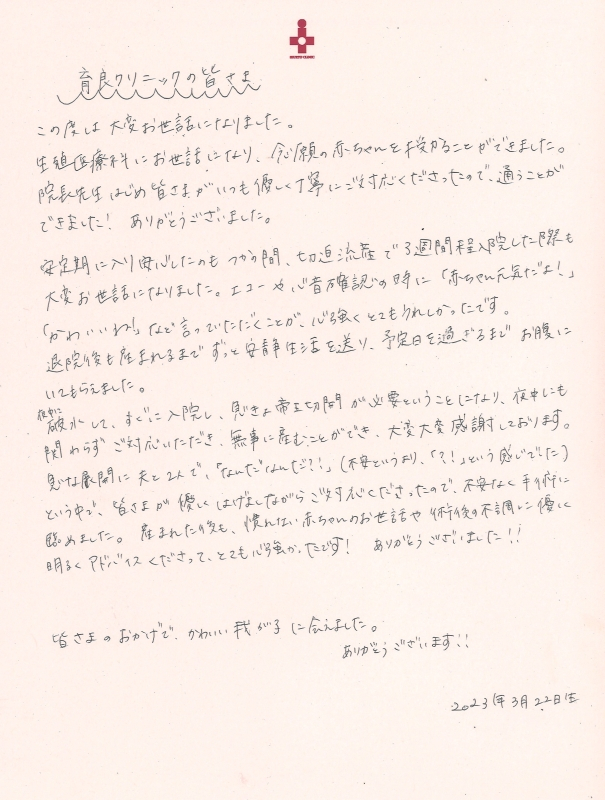 育良クリニックの皆さま
この度は大変お世話になりました。
生殖医療科にお世話になり、念願の赤ちゃんを授かることができました。
院長先生はじめ皆さまがいつも優しく丁寧にご対応くださったので、通うことが
できました! ありがとうございました。
安定期に入り安心したのもつかの間、切迫流産で3週間程入院した際も
大変お世話になりました。エコーや心音確認の時に「赤ちゃん元気だよ!」
「かわいいね!」など言っていただくことが、心強くとてもうれしかったです。
退院後も産まれるまでずっと安静生活を送り、予定日を過ぎるまでお腹に
いてもらえました。
夜中に
破水して、すぐに入院し、急きょ帝王切開が必要ということになり、夜中にも
関わらずご対応いただき、無事に産むことができ、大変大変感謝しております。
急な展開に夫と2人で、「なんだなんだ?!」(不安というより、「?!」という感じでした)
という中で、皆さまが優しくはげましながらご対応くださったので、不安なく手術に
臨めました。産まれた後も、慣れない赤ちゃんのお世話や術後の不調に優しく
明るくアドバイスくださって、とても心強かったです! ありがとうございました!!
皆さまのおかげで、かわいい我が子に会えました。
ありがとうございます!!
2023年3月22日生